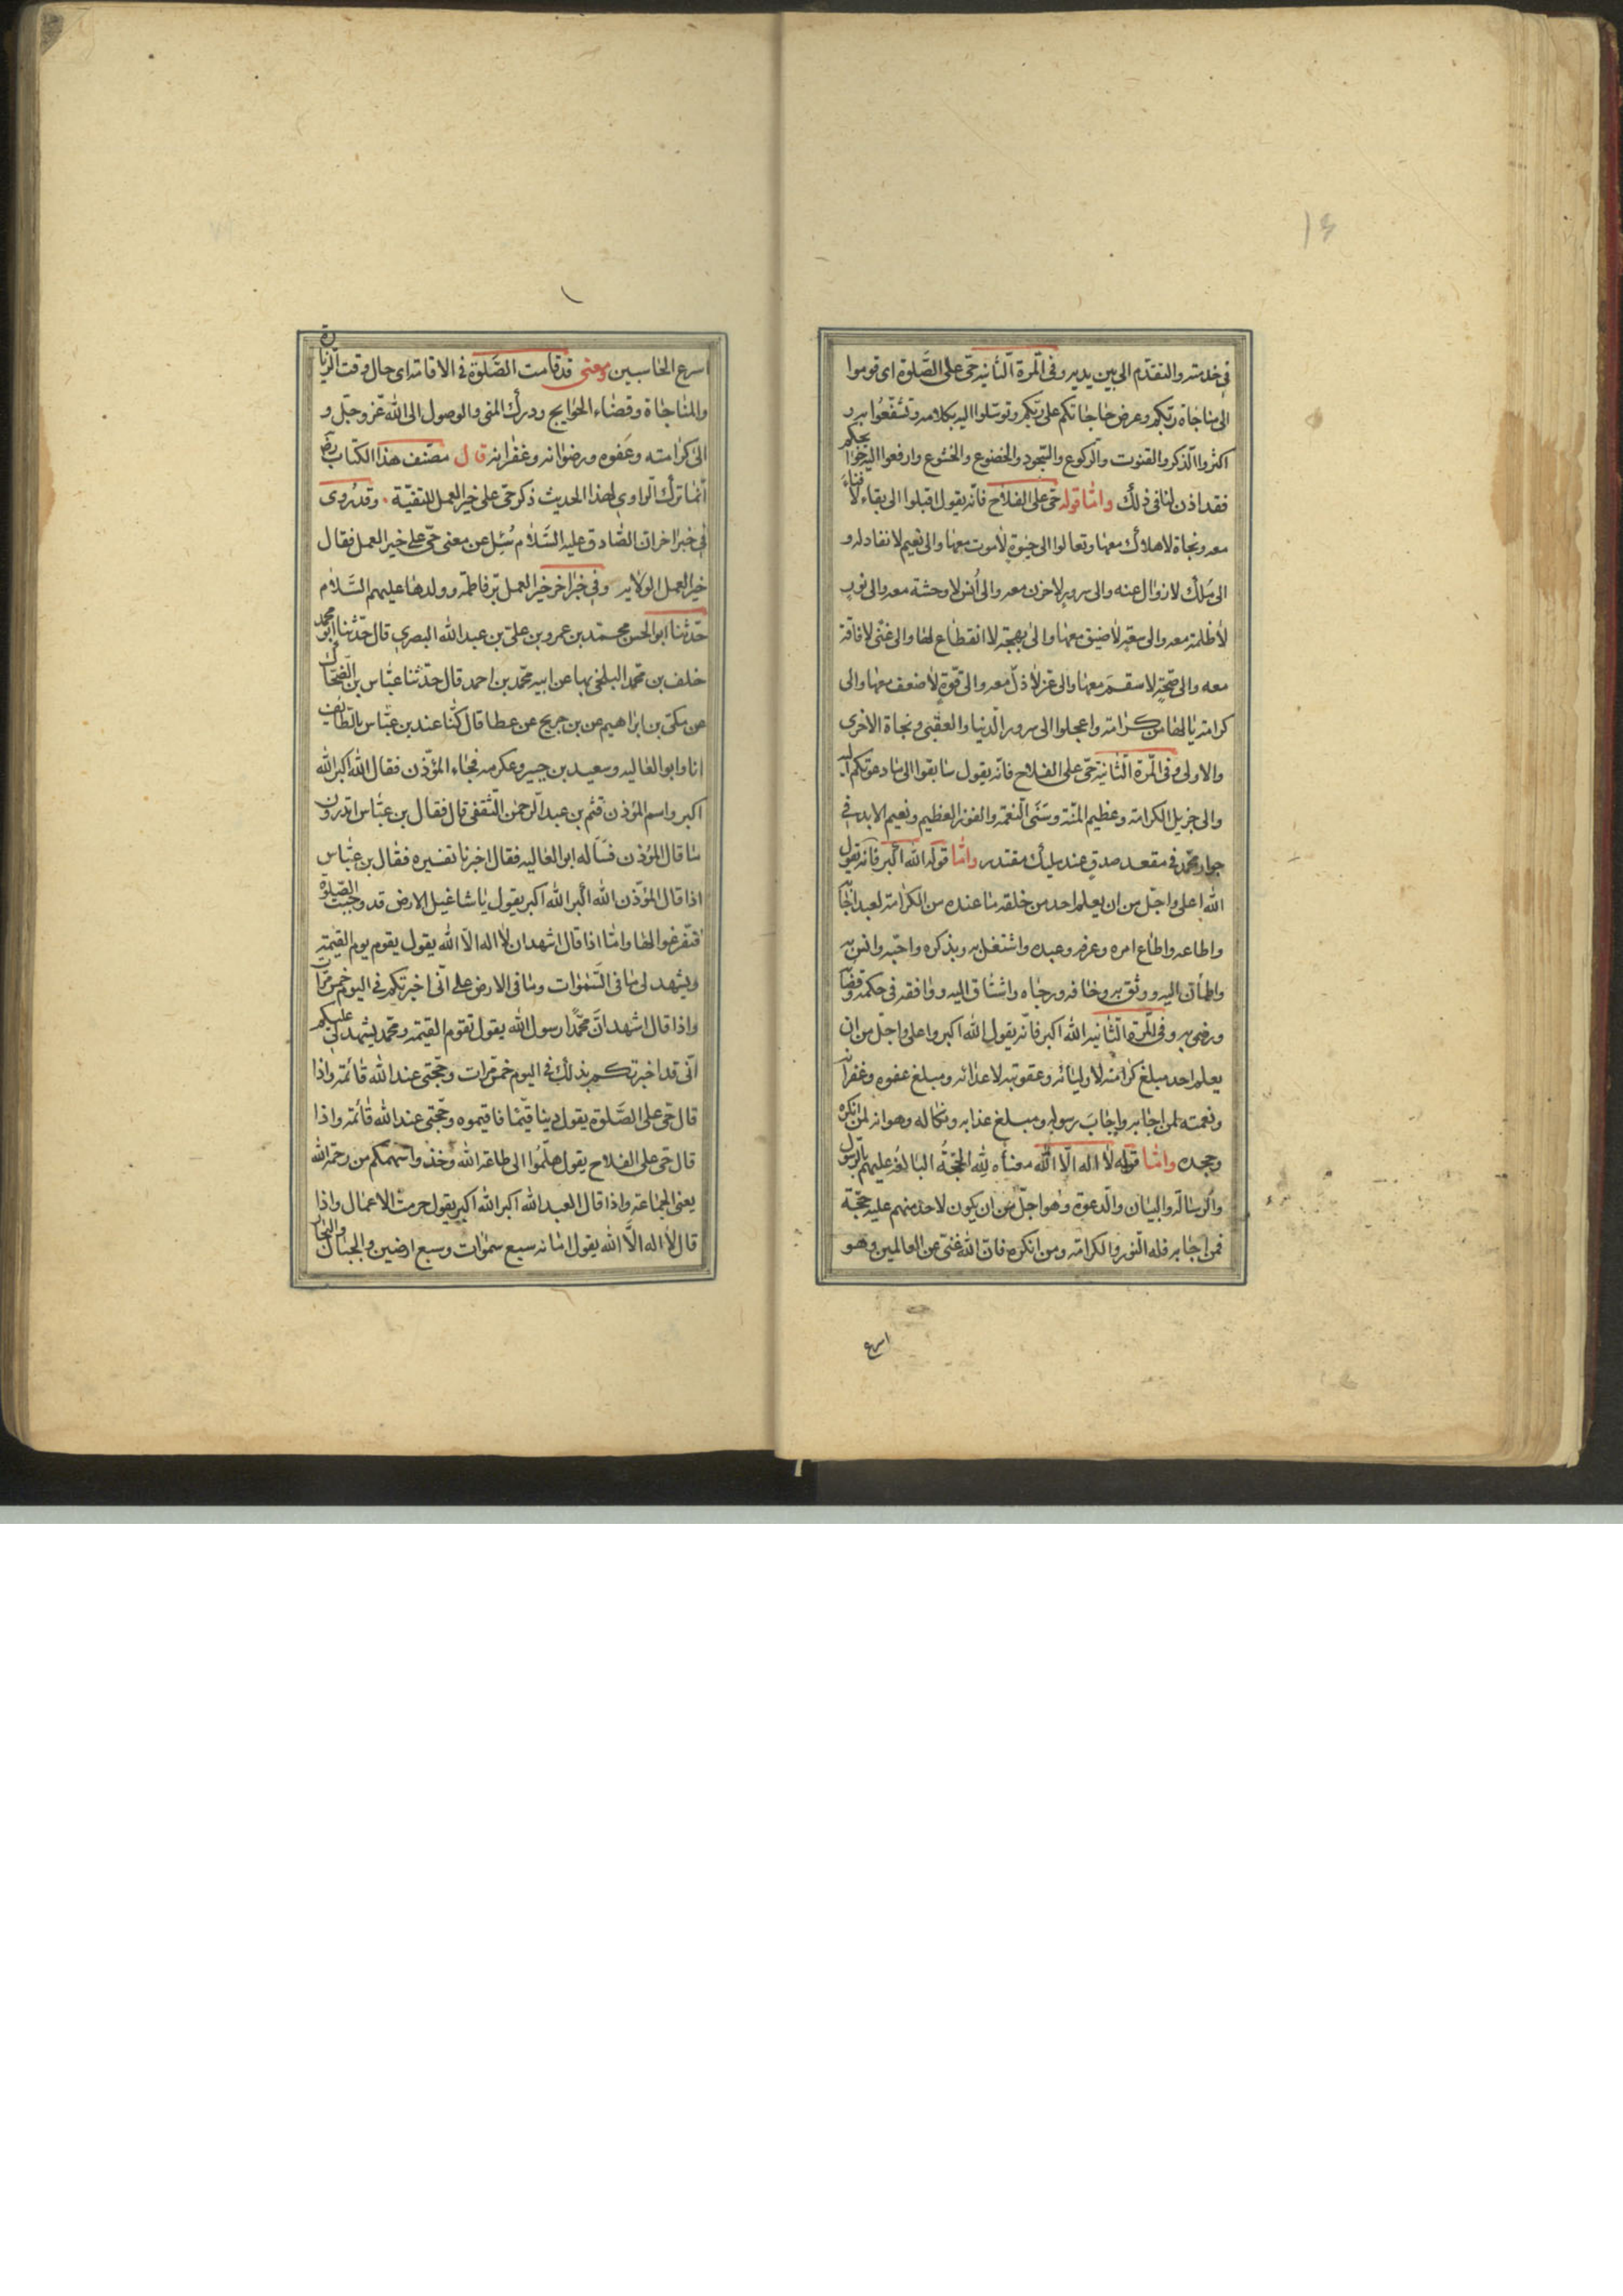 ١٤
في خدمته والتقدّم الى بين يديه وفى المرّة الثّانيه حىّ على الصَّلوة اى قوموا
الى مناجاة ربّكم وعرض حاجاتكم على ربّكم وتوسّلوا اليه بكلامه وتشفّعُوا به و
اكثروا الذّكر والقنوت والرّكوع والسّجود والخضوع والخشوع وارفعوا اليه حوائجكم
فقد اذن لنا في ذلك وامّا قوله حىّ على الفلاح فانّه يقول اقبلوا الى بقاء لا فناء
معه ونجاة لا هلاك معها وتعالوا الى حيٰوة لا موت معها والى نعيم لا نفاد له و
الى مُلك لا زوال عنه والى سرور لا حزن معه والى اُنس لا وحشة معه والى نور
لا ظلمة معه والى سعة لا ضيق معها والى بهجة لا انقطاع لها والى غنًى لا فاقة
معه والى صحّة لا سقم معها والى عزّ لا ذلّ معه والى قوّة لا ضعف معها والى
كرامة يا لها من كرامة واعجلوا الى سرور الدّنيا والعقبى ونجاة الاخرى
والاولى وفى المرّة الثّانية حىّ على الفلاح فانّه يقول سابقوا الى ما دعوتكم اليه
والى جزيل الكرامة وعظيم المنّة وسَنّى النّعمة والفوز العظيم ونعيم الابد في
جوار محمّد في مقعد صدق عند مليك مقتدر وامّا قوله الله اكبر فانّه يقول
الله اعلى واجلّ من ان يعلم احد من خلقه ما عنده من الكرامة لعبد اجابه
واطاعه واطاع امره وعرفه وعبده واشتغل به وبذكره واحبّه وانس به
واطمأنّ اليه ووثق به وخافه ورجاه واشتاق اليه ووافقه في حكمه وقضائه
ورضى به وفى المرّة الثّانيه الله اكبر فانّه يقول الله اكبر واعلى واجلّ من ان
يعلم احد مبلغ كرامته لاوليائه وعقوبته لاعدائه ومبلغ عفوه وغفرانه
ونعمته لمن اجابه واجابَ رسوله ومبلغ عذابه ونكاله وهوانه لمن انكره
وجحده وامّا قوله لا اله الّا الله معناه لِلّٰه الحجّةُ البالغة عليهم بالرّسول
والرّسالة والبيان والدّعوة وهو اجلّ من ان يكون لاحد منهم عليه حجّة
فمن اجابه فله النّور والكرامة ومن انكره فانّ الله غنىّ عن العالمين وهو
اسرع
اسرع الحاسبين ومعنى قد قامت الصَّلوة في الاقامة اى حال وقت الزّيارة
والمناجاة وقضاء الحوايج ودرك المنى والوصول الى الله عزّ وجلّ و
الى كرامته وعَفوه ورضوانه وغفرانه قال مصنّف هذا الكتاب رض
انّما ترك الرّاوي لهذا الحديث ذكر حىّ على خير العمل للتقيّة ٠ وقد رُوى
في خبر اخر ان الصّادق عليه السّلام سُئِل عن معنى حىّ على خير العمل فقال
خير العمل الولايه وفي خبر اخر خير العمل برّ فاطمة وولدها عليهم السَّلام
حدّثنا ابو الحسن محمّد بن عمرو بن علىّ بن عبد الله البصري قال حدّثنا ابو محمّد
خلف بن محمّد البلخى بها عن ابيه محمّد بن احمد قال حدّثنا عبّاس بن الضّحّاك
عن مكّى بن ابراهيم عن بن جريح عن عطا قال كنّا عند بن عبّاس بالطّائف
انا وابو العاليه وسعيد بن جبير وعكرمه فجاء المؤذّن فقال الله اكبر الله
اكبر واسم المؤذن قثم بن عبد الرّحمٰن الثّقفى قال فقال بن عبّاس اتدرون
ما قال المؤذن فسَأله ابو العاليه فقال اخبرنا تفسيره فقال بن عبّاس
اذا قال المؤذّن الله اكبر الله اكبر يقول يا مشاغيل الارض قد وجبت الصّلوة
فتفرغوا لها وامّا اذا قال اشهد ان لا اله الّا الله يقول يقوم يوم القيٰمة
ويشهد لى ما في السّمٰوات وما في الارض على انّى اخبرتكم في اليوم خمس مرّات
واذا قال اشهد انّ محمّدًا رسول الله يقول تقوم القيٰمة ومحمّد يشهد لي عليكم
انّى قد اخبرتكم بذلك في اليوم خمس مرّات وحجّتى عند الله قائمة واذا
قال حىّ على الصَّلوة يقول دينا قيّمًا فاقيموه وحجّتى عند الله قائمة واذا
قال حىّ على الفلاح يقول هلمّوا الى طاعة الله وخذوا سهمكم من رحمة الله
يعنى الجماعة واذا قال العبد الله اكبر الله اكبر يقول حرمت الاعمال واذا
قال لا اله الّا الله يقول امانة سبع سمٰوات وسبع ارضين والجبال والبحار